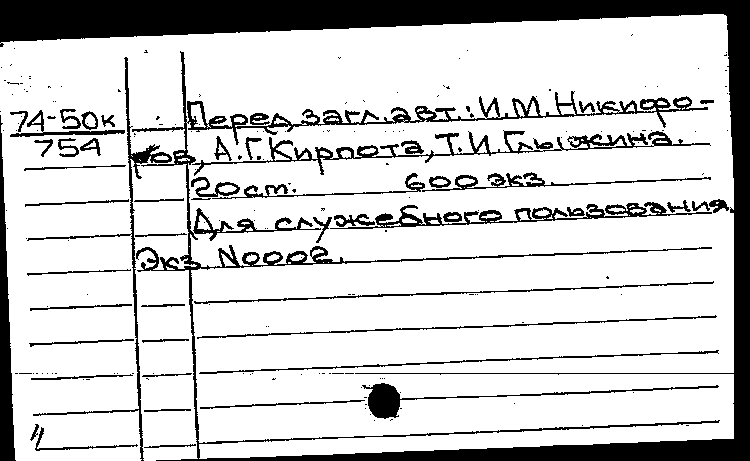 74-50к
754
Перед загл. авт.: И.М. Никифо-
ров, А.Г. Кирпота, Т.И. Глыжина.
20 ст. 600 экз.
Для служебного пользования.
Экз. N0002.